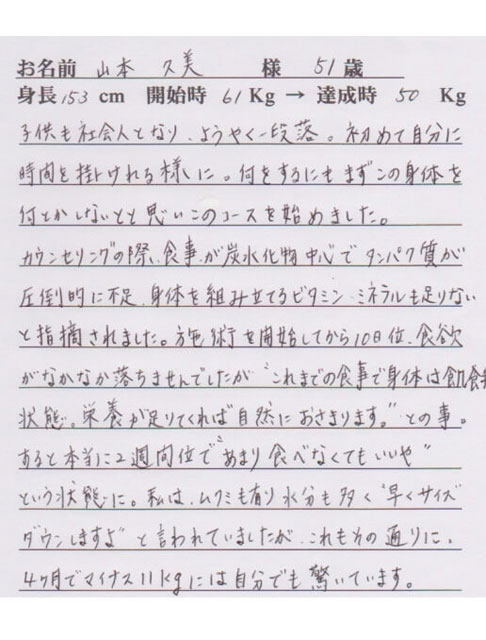 お名前 山本 久美 様 51歳
身長153cm 開始時 61Kg → 達成時 50 Kg
子供も社会人となり、ようやく一段落。初めて自分に
時間を掛けれる様に。何をするにもまずこの身体を
何とかしないとと思いこのコースを始めました。
カウンセリングの際、食事が炭水化物中心でタンパク質が
圧倒的に不足、身体を組み立てるビタミン・ミネラルも足りない
と指摘されました。施術を開始してから10日位、食欲
がなかなか落ちませんでしたが“これまでの食事で身体は飢餓
状態。栄養が足りてくれば自然におさまります。”との事。
すると本当に2週間位で“あまり食べなくてもいいや”
という状態に。私は、ムクミも有り水分も多く“早くサイズ
ダウンしますよ”と言われていましたが、これもその通りに。
4ヶ月でマイナス11kgには自分でも驚いています。